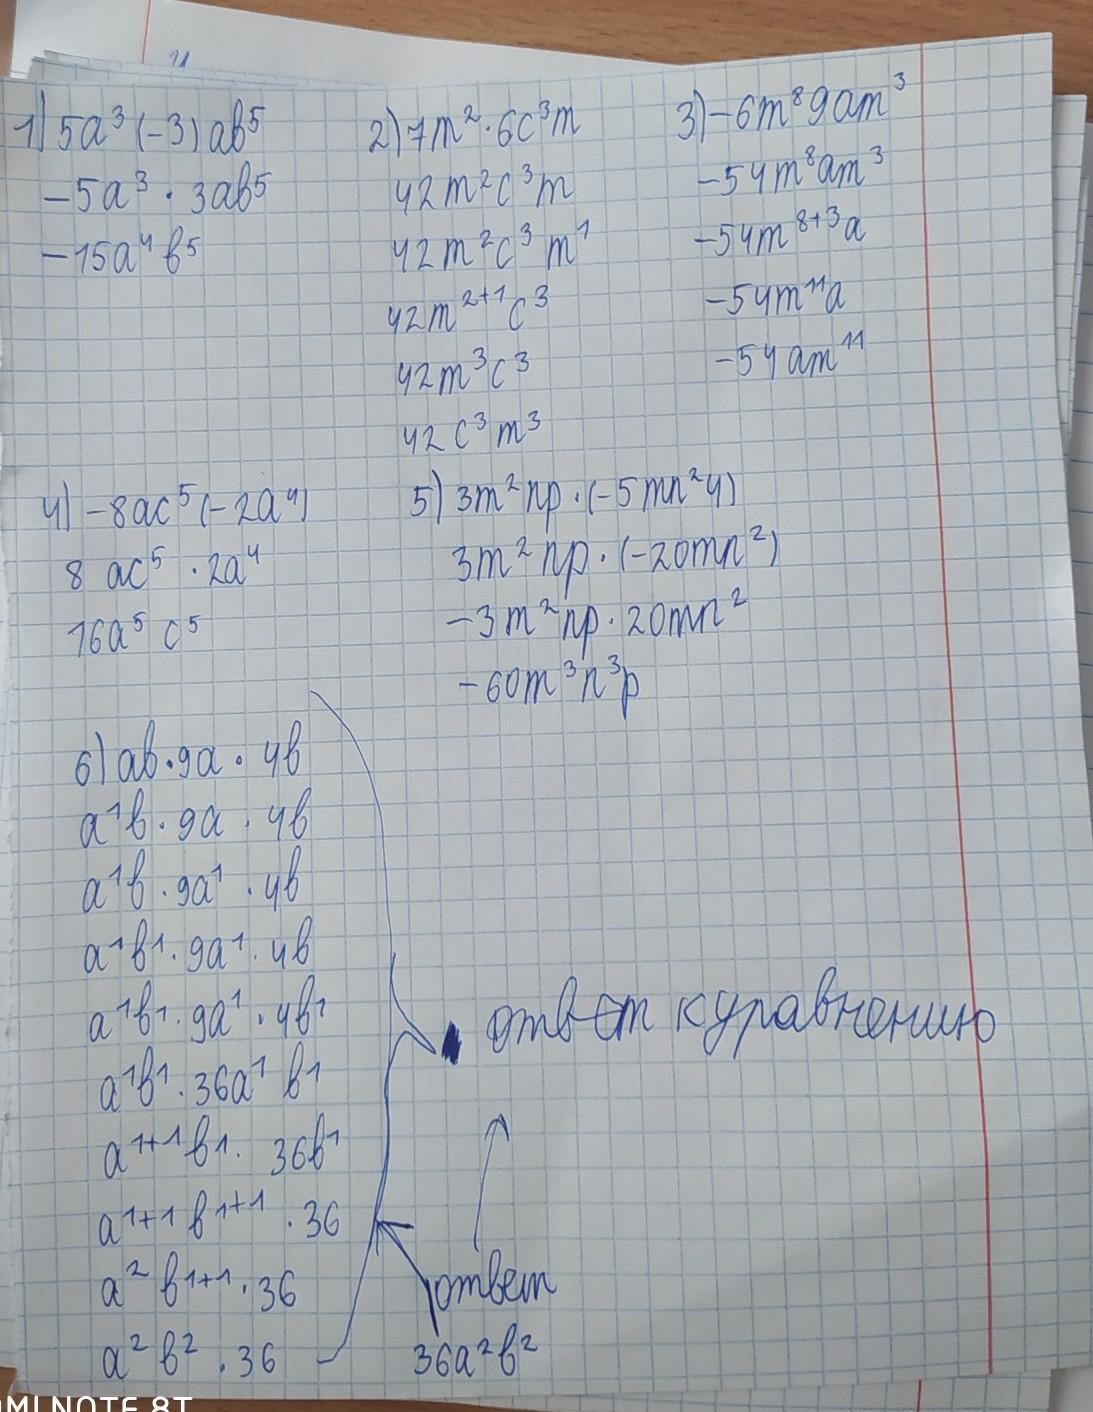 1) 5a³ (-3) ab⁵
-5a³ · 3ab⁵
-15a⁴ b⁵
2) 7m² · 6c³m
42m²c³m
42m²c³m¹
42m²⁺¹c³
42m³c³
42c³m³
3) -6m⁸9am³
-54m⁸am³
-54m⁸⁺³a
-54m¹¹a
-54am¹¹
4) -8ac⁵ (-2a⁴)
8 ac⁵ · 2a⁴
16a⁵ c⁵
5) 3m²np · (-5mn²4)
3m²np · (-20mn²)
-3m²np · 20mn²
-60m³n³p
6) ab · 9a · 4b
a¹b · 9a · 4b
a¹b · 9a¹ · 4b
a¹b¹ · 9a¹ · 4b
a¹b¹ · 9a¹ · 4b¹
a¹b¹ · 36a¹ b¹
a¹⁺¹b¹ · 36b¹
a¹⁺¹ b¹⁺¹ · 36
a² b¹⁺¹ · 36
a² b² · 36
ответ к уравнению
ответ
36a²b²
MI NOTE 8T